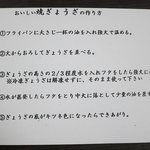 おいしい焼ぎょうざの作り方
①フライパンに大さじ一杯の油を入れ強火で温める。
②火からおろしてぎょうざを並べる。
③ぎょうざの高さの2/3程度水を入れフタをしたら強火に
※冷凍ぎょうざは解凍せずに、そのまま使って下さい
④水が蒸発したらフタをとり中火に落として少量の油を
⑤ぎょうざの底がキツネ色になったらできあがり。